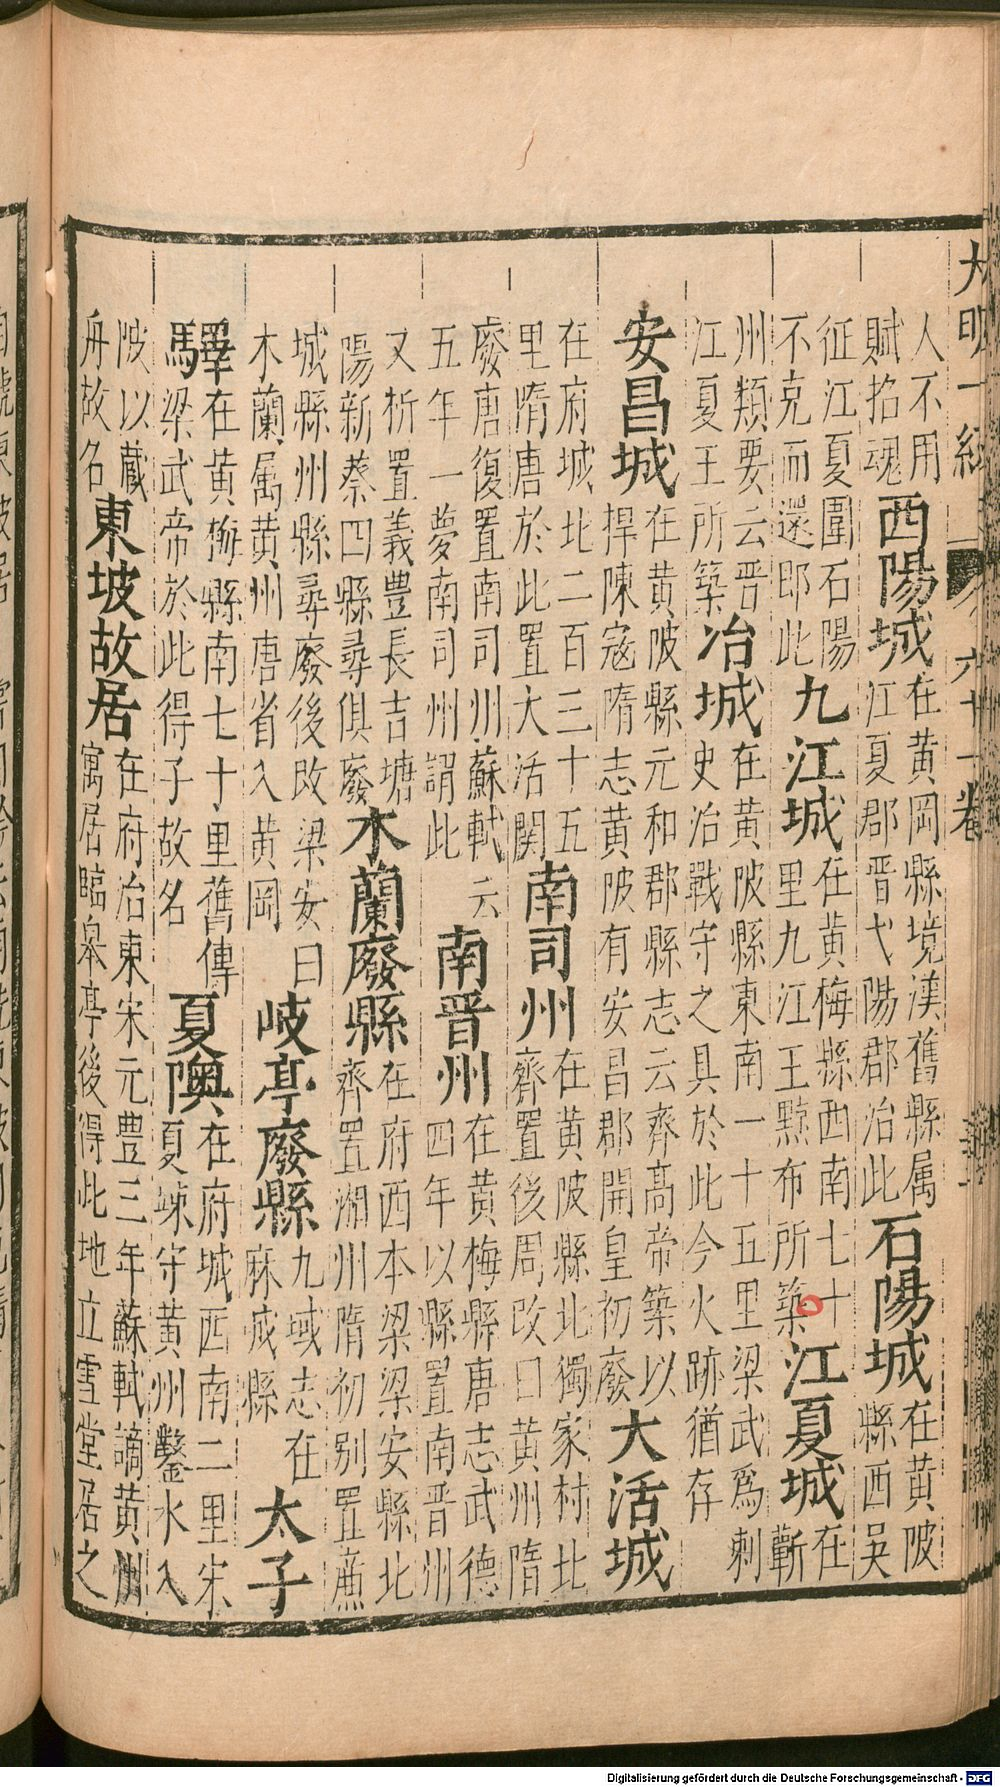 大明一統 六十一卷
人不用
賦招魂
西陽城
在黄岡縣境漢舊縣属
江夏郡晋弋陽郡治此
石陽城
在黄陂
縣西吳
征江夏圍石陽
不克而還即此
九江城
在黄梅縣西南七十
里九江王黥布所築
江夏城
在
蘄
州類要云晋
江夏王所築
冶城
在黄陂縣東南一十五里梁武爲刺
史治戰守之具於此今火跡猶存
安昌城
在黄陂縣元和郡縣志云齊髙帝築以
捍陳寇隋志黄陂有安昌郡開皇初廢
大活城
在府城北二百三十五
里隋唐於此置大活関
南司州
在黄陂縣北獨家村北
齊置後周改曰黄州隋
廢唐復置南司州蘇軾云
五年一夢南司州謂此
南晋州
在黄梅縣唐志武德
四年以縣置南晋州
又析置義豊長吉塘
陽新蔡四縣尋俱廢
木蘭廢縣
在府西本梁梁安縣北
齊置湘州隋初别置廉
城縣州縣尋廢後改梁安曰
木蘭属黄州唐省入黄岡
岐亭廢縣
九域志在
麻城縣
太子
驛
在黄梅縣南七十里舊傳
梁武帝於此得子故名
夏隩
在府城西南二里宋
夏竦守黄州鑿水入
陂以藏
舟故名
東坡故居
在府治東宋元豊三年蘇軾謫黄州
寓居臨皋亭後得此地立雪堂居之
Digitalisierung gefördert durch die Deutsche Forschungsgemeinschaft - DFG